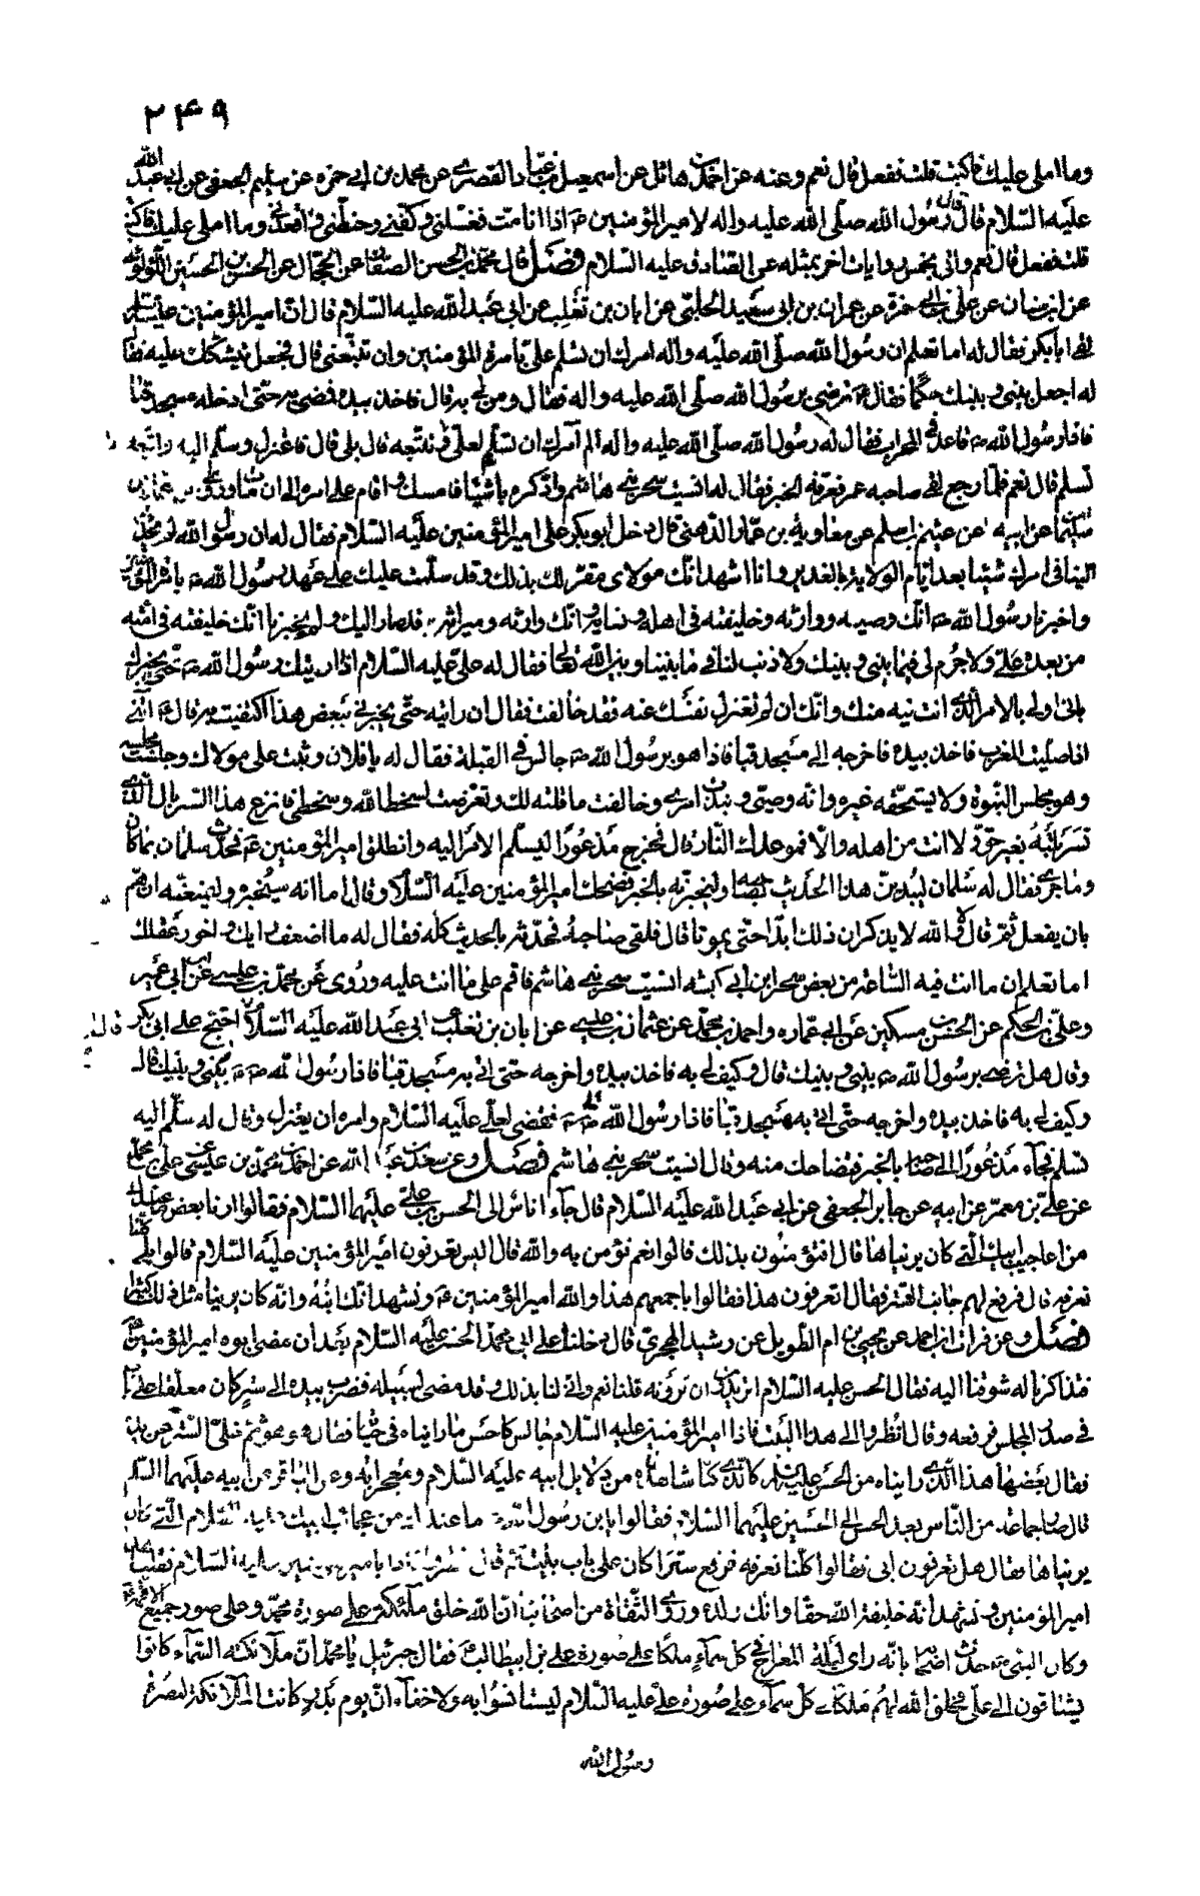 ٢٤٩
وما املى عليك فاكتب قلت تفعل قال نعم وعنه عن احمد بن هلال عن اسمعيل بن عباد القصرى عن محمد بن ابى حمزه عن سليم الجعفى عن ابى عبد الله
عليه السّلام قال قال رسُول الله صلّى الله عليه واله لامير المؤمنين ع اذا انا متّ فغسلنى وكفّنى وحنطنى واقعدنى وما املى عليك فاكتب
قلت تفعل قال نعم واتى بخمس روايات اخر بمثله عن الصادق عليه السلام فصَل قال محمد بن الحسن الصفار عن الحجال عن الحسن بن الحسين اللؤلؤى
عن ابن سنان عن على بن ابى حمزة عن عمران بن ابى سعيد الحلبى عن ابان بن تغلب عن ابى عبد الله عليه السّلام قال ان امير المؤمنين عليه السلم
لقى ابا بكر فقال له اما تعلم ان رسُول الله صلّى الله عليه واله امرك ان تسلم علىّ بامرة المؤمنين وان تتبعنى قال فجعل يشكك عليه فقال
له اجعل بينى وبينك حكمًا فقال ع ترضى برسُول الله صلّى الله عليه واله فقال ومن لى به قال فاخذ بيده فمضى به حتّى ادخله مسجد قبا
فاذا رسُول الله ص قاعد فى المحراب فقال له رسُول الله صلّى الله عليه واله الم آمرك ان تسلّم لعلىّ وتتبعه قال بلى قال فاعتزل وسلّم اليه واتبعه
تسلم قال نعم فلمّا رجع لقى صاحبه عمر فعرفه الخبر فقال له انسيت سحر بنى هاشم وذكره باشيا فامسك واقام على امره الى ان مات وروى
عن ابيه عن عيثم بن اسلم عن معاوية بن عمّار الدهنى قال دخل ابو بكر على امير المؤمنين عليه السلام فقال له ان رسُول الله لم يحدث
الينا فى امرك شيئا بعد ايّام الولاية بالغدير وانا اشهد انّك مولاى مقرّ لك بذلك وقد سلّمت عليك على عهد رسُول الله ص بامرة المؤمنين
واخبرنا رسُول الله ص انّك وصيه ووارثه وخليفته فى اهله ونسائه وانّك وارثه وميراثه قد صار اليك ولم يخبرنا انّك خليفته فى امّته
من بعده علىّ ولا جرم لى فيما بينى وبينك ولا ذنب لنا فى ما بيننا وبين الله تعالى فقال له علىّ عليه السلام اذا اريتك رسُول الله ص حتّى يخبرك
بانى اولى بالامر الّذى انت فيه منك وانّك ان لم تعتزل نفسَك عنه فقد خالفت فقال ان رأيته حتّى يخبرنى ببعض هذا اكتفيت به قال ع ائتنى
اذا صلّيت المغرب فاخذ بيده فاخرجه الى مسجد قبا فاذا هو برسُول الله ص جالس فى القبلة فقال له يا فلان وثبت على مولاك وجلست مجلسه
وهو مجلس النبوّة ولا يستحقّه غيره وانّه وصيّى ونبذت امرى وخالفت ما قلته لك وتعرّضت لسخط الله وسخطى فانزع هذا السّربال الّذى
تسربلته بغير حقّ ولا انت من اهله والّا فموعدك النّار قال فخرج مَذعُورًا ليسلّم الامر اليه وانطلق امير المؤمنين ع فحدّث سلمان بما كان
وما جرى فقال له سَلمان ليبدينّ هذا الحديث لصاحبه وليخبرنّه بالخبر فضحك امير المؤمنين عليه السّلام وقال اما انه سيُخبره وليمنعنّه ان همّ
بان يفعل ثمّ قال لا والله لا يذكران ذلك ابدًا حتّى يموتا قال فلقى صَاحبهُ فحدّثه بالحديث كلّه فقال له ما اضعف رايك واخور عقلك
اما تعلم ان ما انت فيه السّاعة من بعض سحر ابن ابى كبشه انسيت سحر بنى هاشم فاقم على ما انت عليه ورُوى عَن محمّد بن عليسى عن ابن ابى عمير
وعلىّ بن الحكم عن الحكم بن مسكين عن ابى عمّاره واحمد بن محمّد عن عثمان بن عليسى عن ابان بن تغلب عن ابى عبد الله عليه السّلام احتج على ابى بكر
وقال هل ترضى برسُول الله ص بينى وبينك قال وكيف لى به فاخذ بيده واخرجه حتى اتى به مسجد قبا فاذا رسُول الله ص
وكيف لى به فاخذ بيده واخرجه حتّى اتى به مسجد قبا فاذا رسُول الله ص فقضى لعلى عليه السلام وامره ان يعتزل وقال له سلّم اليه
تسلم فجآء مَذعُورًا الى صاحبه بالخبر فتضاحك منه وقال انسيت سحر بنى هَاشم فصَل وعن سعد بن عبد الله عن احمد بن محمد بن عيسى عن على بن محمد
عن علىّ بن معمر عن ابيه عن جابر الجعفى عن ابى عبد الله عليه السلام قال جآء اناس الى الحسن بن علىّ عليهما السّلام فقالوا ارنا بعض ما عندك
من اعاجيب ابيك الّتى كان يريناها قال اتؤمنُون بذلك قالوا نعم نؤمن به والله قال اليس تعرفون امير المؤمنين عليه السّلام قالوا بلى كلنا
نعرفه قال فرفع لهم جانب الستر فقال اتعرفون هذا فقالوا باجمعهم هذا والله امير المؤمنين ع ونشهد انّك ابنُهُ وانّه كان يرينا مثل ذلك كثيرا
فصَل وعن فرات بن احمد عن يحيى بن ام الطّويل عن رشيد الهجرىّ قال دخلنا على ابى محمّد الحسن عليه السلام بعد ان مضى ابوه امير المؤمنين
فتذاكرنا له شوقنا اليه فقال الحسن عليه السلام اتريدون ان تروْنه قلنا نعم وانّى لنا بذلك وقد مضى لسَبيله فضرب بيده الى ستر كان معلّقا على باب
فى صدر المجلس فرفعه وقال انظروا الى هذا البيت فاذا امير المؤمنين عليه السلام جالس كاحسن ما رايناه فى حياته فقال هو هو ثم خلّى الستر من يده
فقال بعضنا هذا الّذى رايناه من الحسن عليه السلام كالّذى كنّا نشاهده من دلايل ابيه عليه السلام ومعجزاته وعن الباقر عن ابيه عليهما السلم
قال صار جماعة من النّاس بعد الحسن الى الحسين عليهما السلام فقالوا يابن رسُول الله ما عندك من عجائب ابيك عليه السّلام الّتى كان
يريناها فقال هل تعرفون ابى فقالوا كلّنا نعرفه فرفع سترًا كان على باب بيت ثم قال انظروا فنظرنا فاذا امير المؤمنين عليه السّلام فقلنا
امير المؤمنين ونشهد انّه خليفة الله حقّا وانّك ولده وروى الثقاة من اصحابنا ان الله خلق ملئكة على صورة محمّد وعلى صور جميع الائمة ع
وكان النبى ص حدّث اصحابه انّه راى ليلة المعراج فى كل سمآء ملكًا على صُورة على بن ابيطالب فقال جبرئيل يا محمّد انّ ملائكة السّمآء كانوا
يشتاقون الى علىّ فخلق الله لهم ملكا فى كل سمآء على صُورة علىّ عليه السّلام ليستانسُوا به ولا خفآء انّ يوم بَدرٍ كانت الملائكة لنصرة
رسُول الله